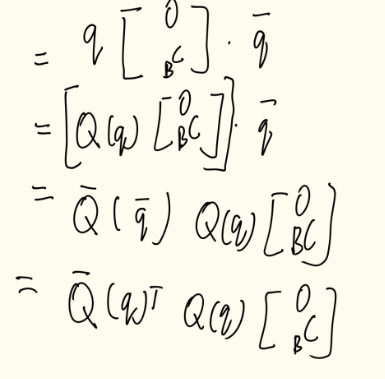 = q [ 0 BC ] · q̄
= [ Q(q) [ 0 BC ] ] · q̄
= Q̄(q̄) Q(q) [ 0 BC ]
= Q̄(q)ᵀ Q(q) [ 0 BC ]